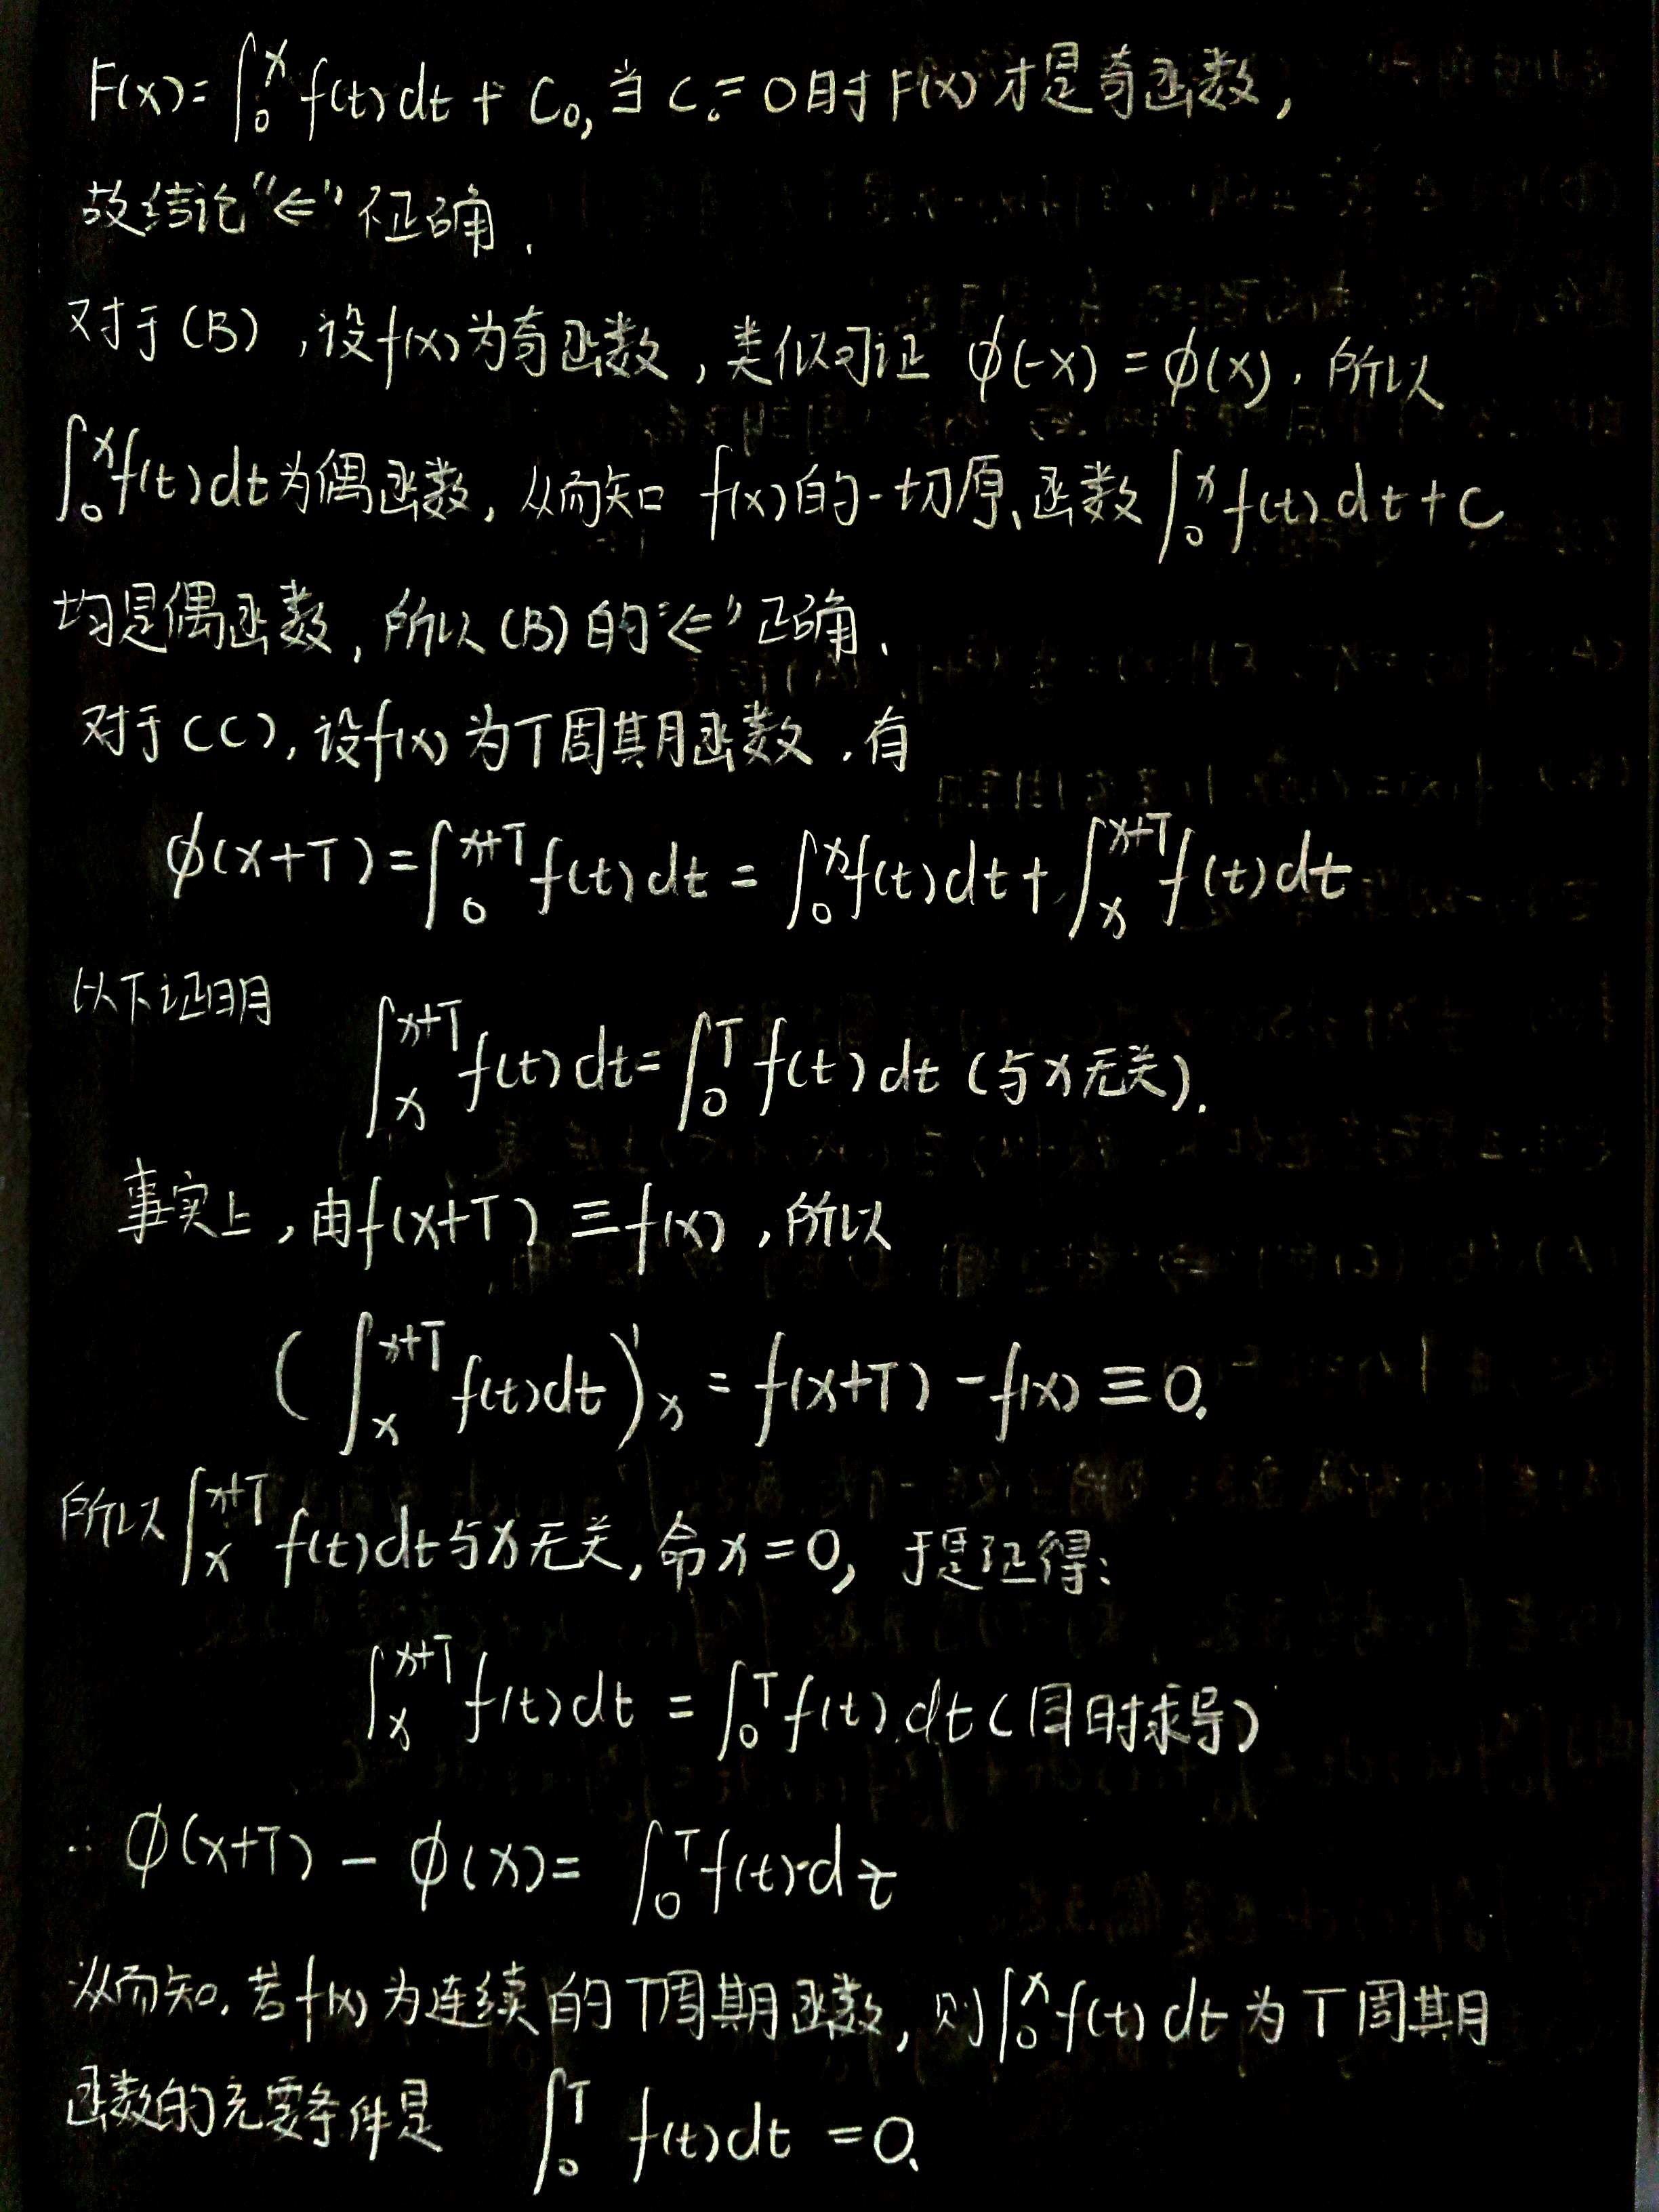 F(x)=∫₀ˣ f(t)dt + C₀, 当 C₀=0时 F(x) 才是奇函数,
故结论“⇐”不正确.
对于(B),设f(x)为奇函数,类似可证 φ(-x)=φ(x).所以
∫₀ˣ f(t)dt为偶函数,从而知 f(x)的一切原函数∫₀ˣ f(t)dt+C
均是偶函数,所以(B)的“⇐”正确.
对于(C),设f(x)为T周期函数.有
φ(x+T)=∫₀ˣ⁺ᵀ f(t)dt=∫₀ˣ f(t)dt+∫ₓˣ⁺ᵀ f(t)dt
以下证明
∫ₓˣ⁺ᵀ f(t)dt=∫₀ᵀ f(t)dt(与x无关).
事实上,由f(x+T)≡f(x),所以
(∫ₓˣ⁺ᵀ f(t)dt)'ₓ=f(x+T)-f(x)≡0.
所以∫ₓˣ⁺ᵀ f(t)dt与x无关,命x=0,于是证得:
∫ₓˣ⁺ᵀ f(t)dt=∫₀ᵀ f(t)dt(同时求导)
∴ φ(x+T)-φ(x)=∫₀ᵀ f(t)dt
从而知,若f(x)为连续的T周期函数,则∫₀ˣ f(t)dt为T周期
函数的充要条件是 ∫₀ᵀ f(t)dt=0.